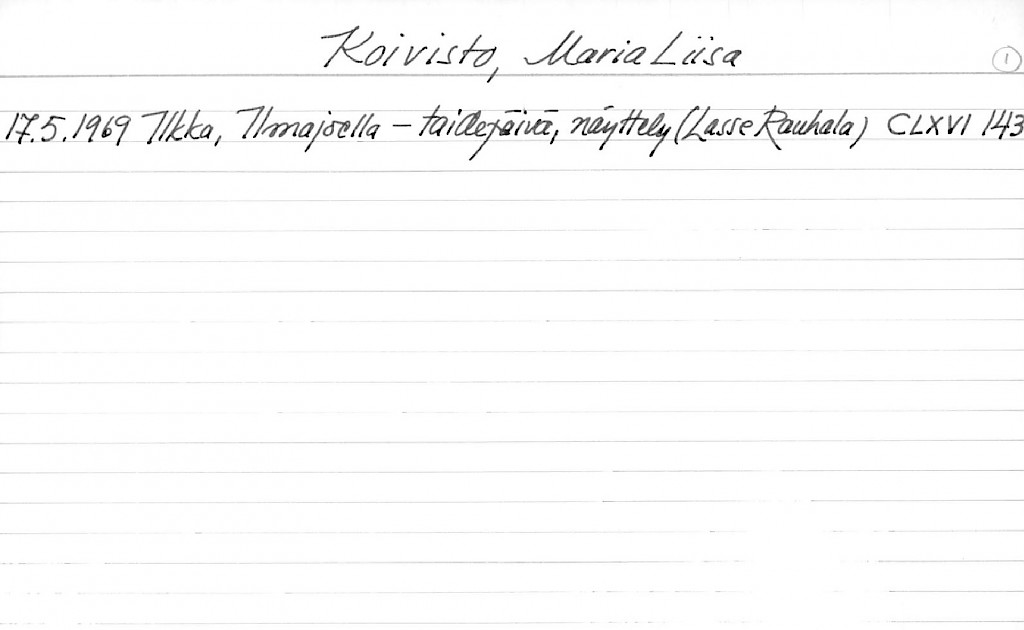 Koivisto, Maria Liisa
1
17.5.1969 Ilkka, Ilmajoella - taidepäivä, näyttely (Lasse Rauhala) CLXVI 143